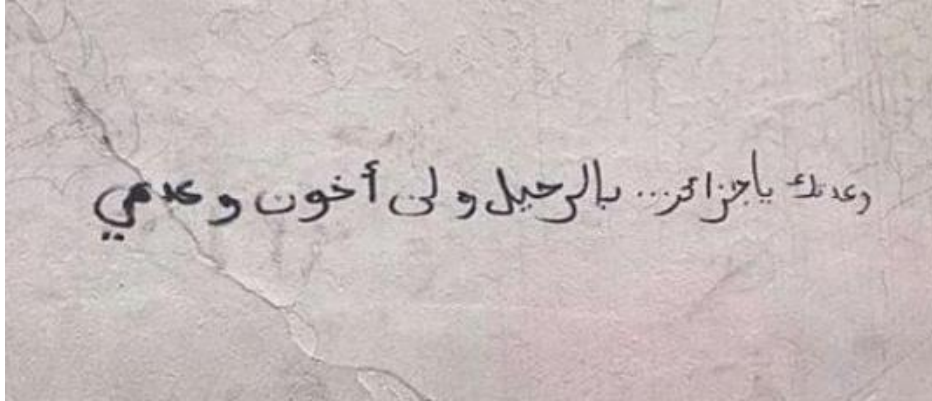 وعدتك ياجزائر... بالرحيل و لن أخون وعدي